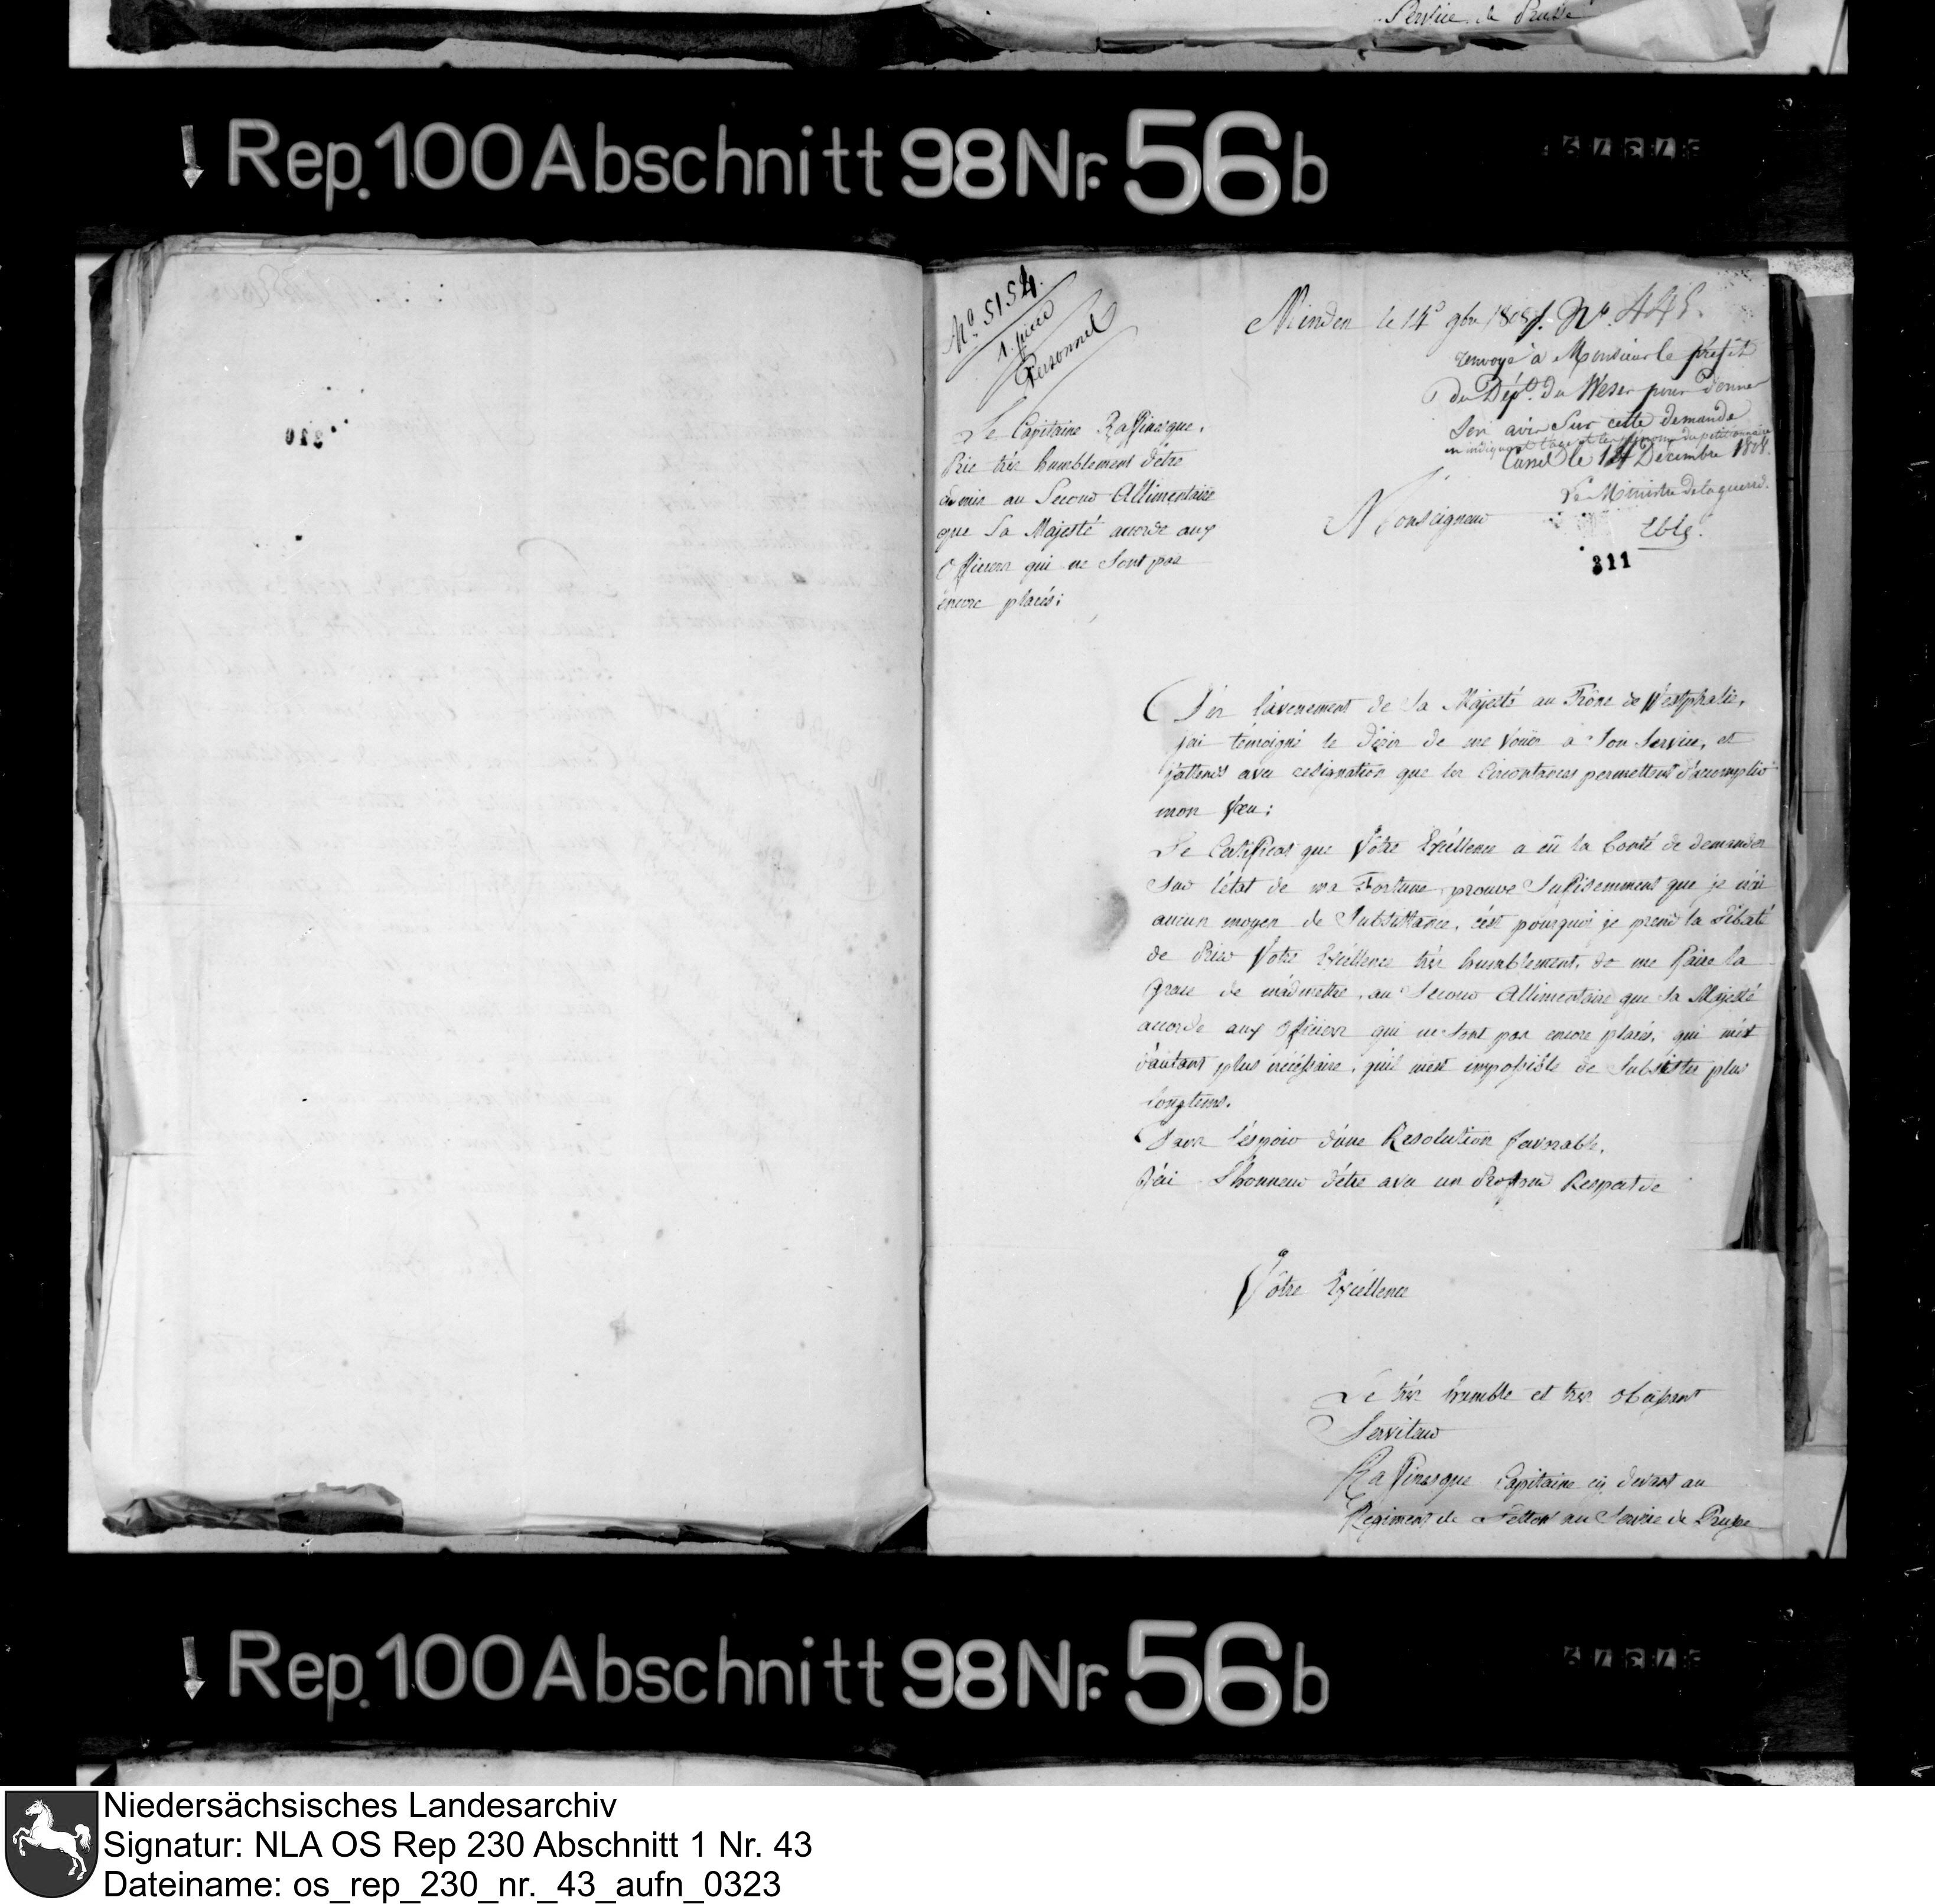 Service de Prusse
Rep. 100 Abschnitt 98 Nr. 56b
310
No. 5154.
1. piece
Personnel
Le Capitaine Raffinesque,
Prie trés humblement d'être
admis au Secour Allimentaire
que Sa Majesté accorde aux
Officiers qui ne Sont pas
encore placés;
Minden le 14e 9bre 1808. No. 445.
renvoyé à Monsieur le préfet
du Dépt. du Weser pour donner
Son avis Sur cette demande
en indiquant l'age et les prenoms du petitionnaire
Cassel le 14 Décembre 1808.
Le Ministre de la guerre.
Eblé.
Monseigneur
311
Dès l'avenement de Sa Majesté au Trône de Westphalie,
j'ai temoigné le désir de me Vouër a Son Service, et
j'attends avec resignation que les Circontances permettent d'accomplir
mon Vœu;
Le Certificat que Votre Excéllence a eû la bonté de demander
Sur l'état de ma Fortune prouve Suffisemment que je n'ai
aucun moyen de Subsistance, c'est pourquoi je prend la Liberté
de Prier Votre Excéllence très humblement, de me Faire la
grace de m'admettre, au Secour Allimentaire que Sa Majesté
accorde aux Officiers qui ne Sont pas encore placés, qui m'est
d'autant plus nécéssaire, qu'il m'est impossible de Subsister plus
longtems.
Dans l'éspoir d'une Resolution favorable,
J'ai l'honneur d'être avec un Profond Respect de
Votre Excéllence
Le très humble et tres obeissant
Serviteur
Raffinesque Capitaine cy devant au
Regiment de Lettow au Service de Prusse
Rep. 100 Abschnitt 98 Nr. 56b
Niedersächsisches Landesarchiv
Signatur: NLA OS Rep 230 Abschnitt 1 Nr. 43
Dateiname: os_rep_230_nr._43_aufn_0323